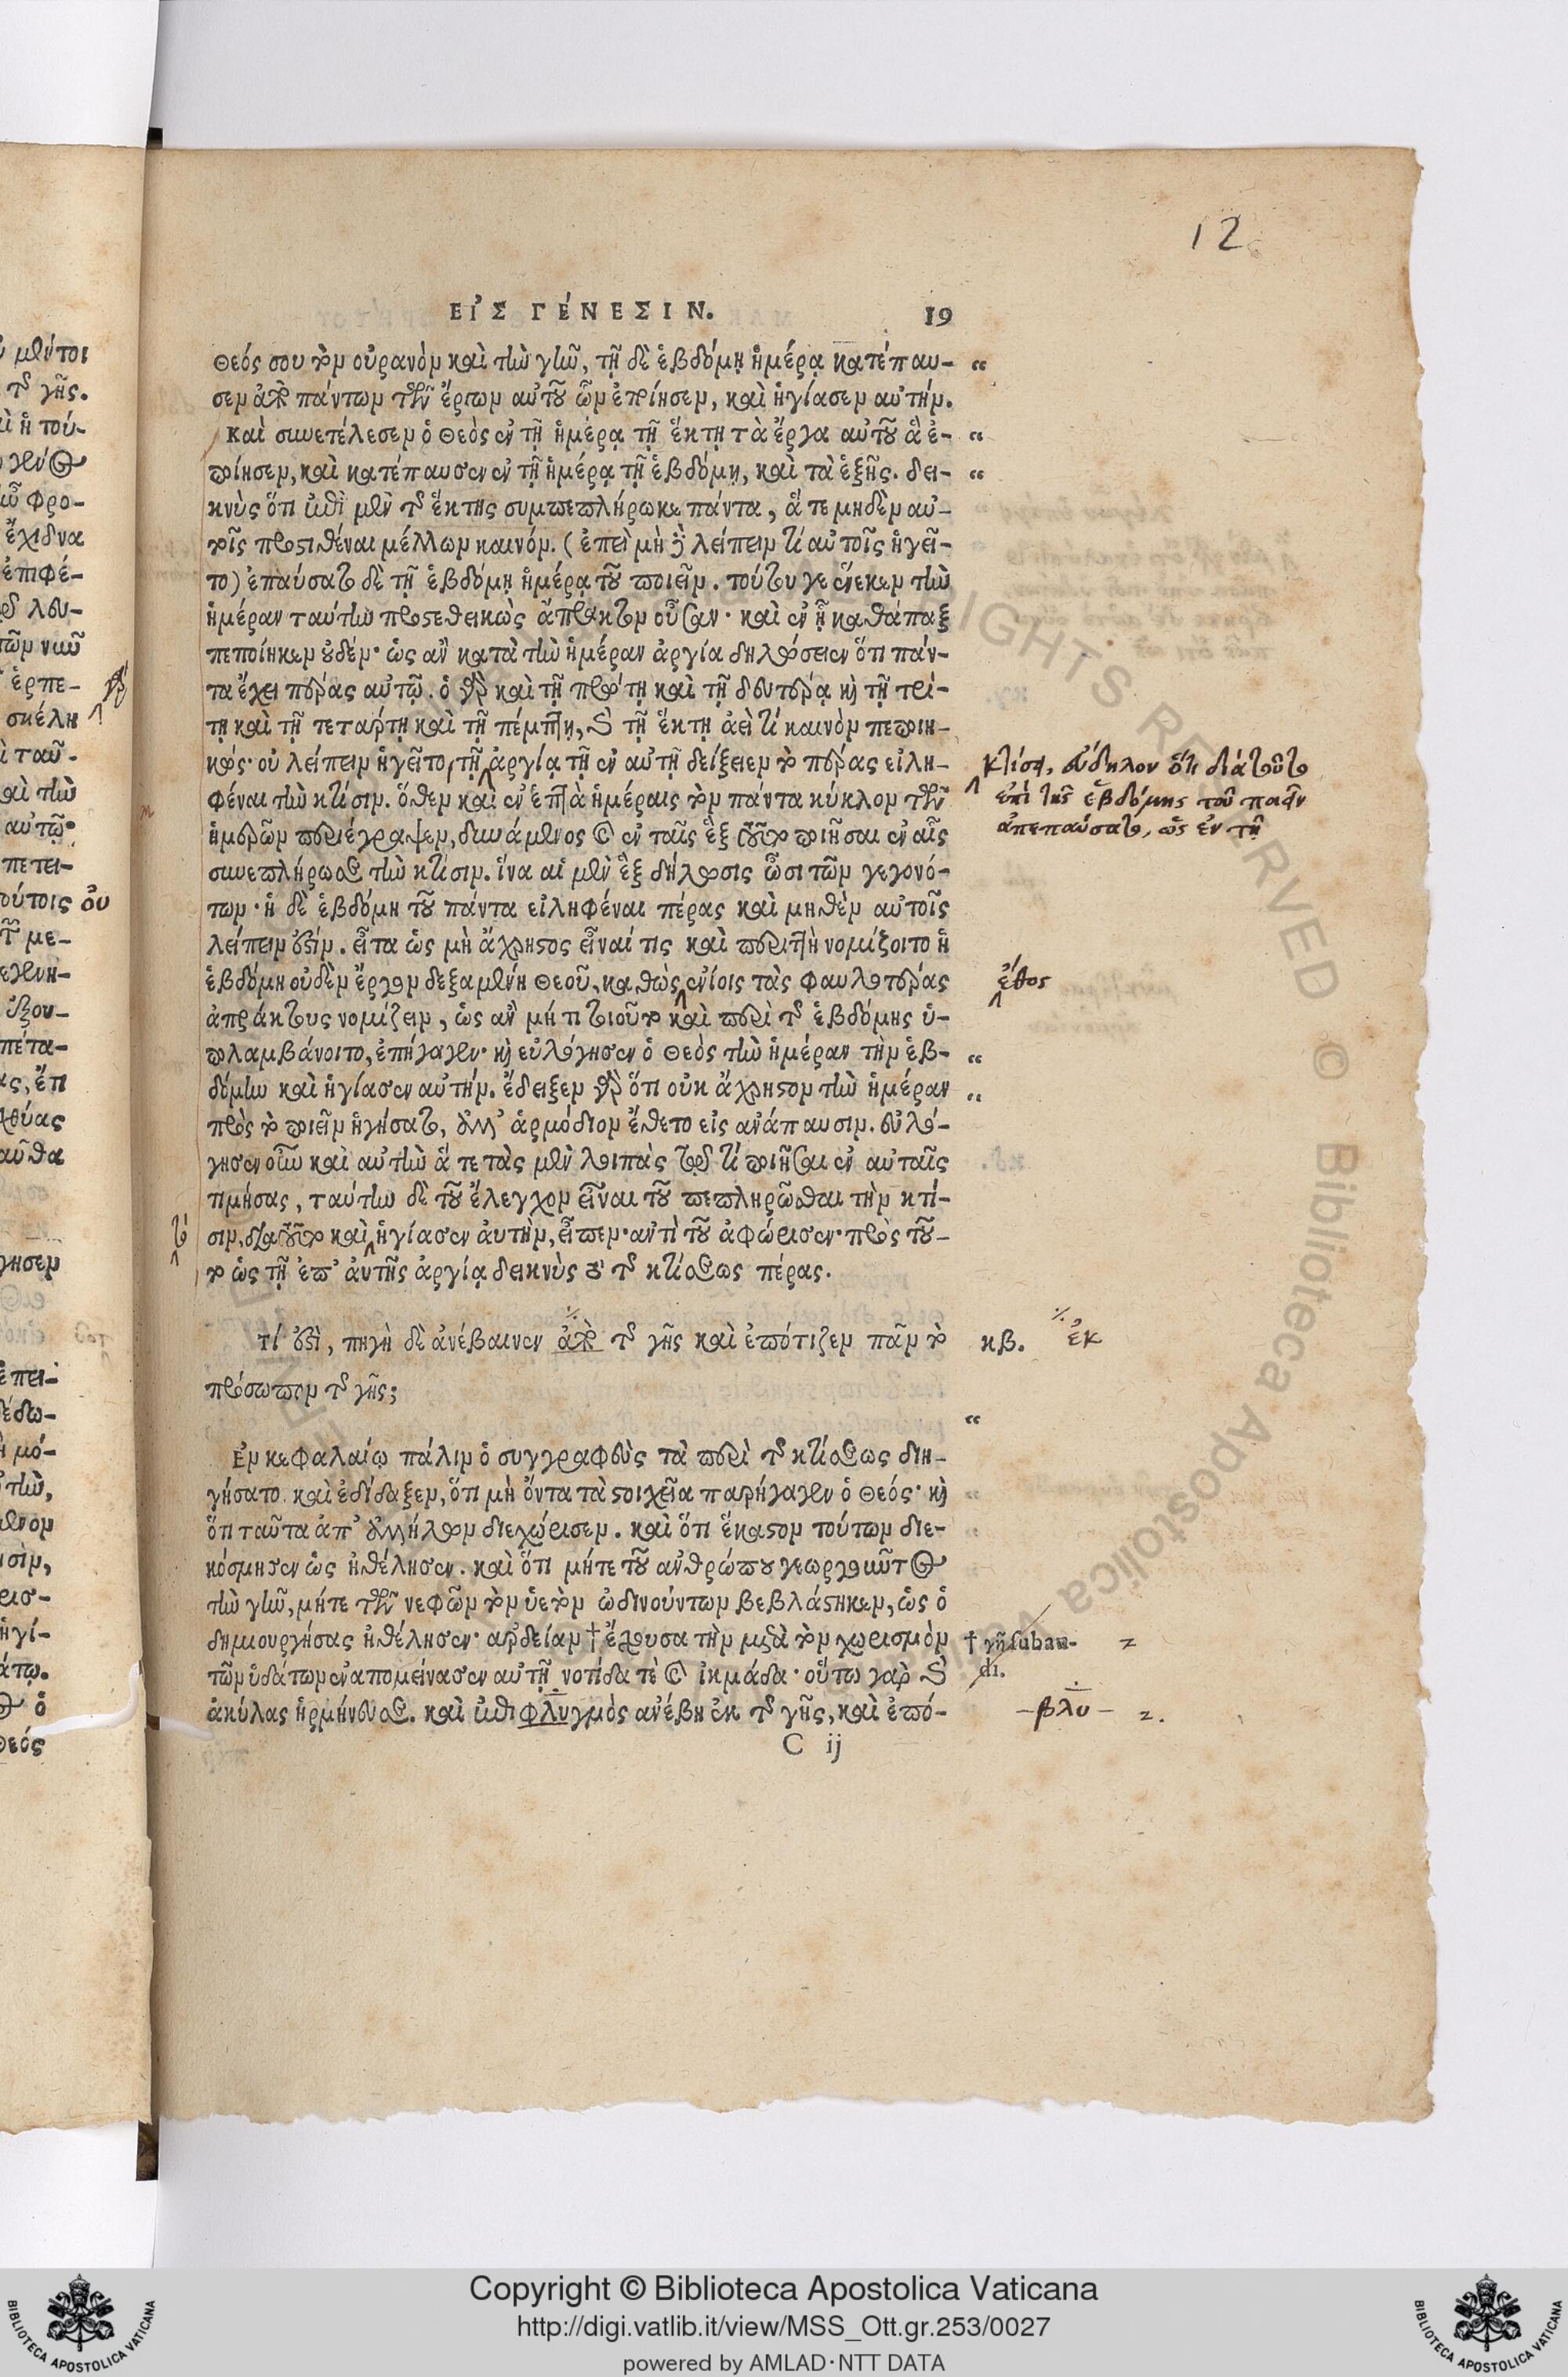 12
ΕΙ᾿Σ ΓΈΝΕΣΙΝ. 19
Θεός σου τὸν οὐρανὸν καὶ τὴν γῆν, τῇ δὲ ἑβδόμῃ ἡμέρᾳ κατέπαυ- “
σεν ἀπὸ πάντων τῶν ἔργων αὐτοῦ ὧν ἐποίησεν, καὶ ἡγίασεν αὐτήν.
Καὶ συνετέλεσεν ὁ Θεὸς ἐν τῇ ἡμέρᾳ τῇ ἕκτῃ τὰ ἔργα αὐτοῦ ἃ ἐ- “
ποίησεν, καὶ κατέπαυσεν ἐν τῇ ἡμέρᾳ τῇ ἑβδόμῃ, καὶ τὰ ἑξῆς. δει- “
κνὺς ὅτι ἐπὶ μὲν τῆς ἕκτης συμπεπλήρωκε πάντα, ἅτε μηδὲν αὐ-
τοῖς προστιθέναι μέλλων καινόν. (ἐπεὶ μὴ λείπειν τί αὐτοῖς ἡγεῖ-
το) ἐπαύσατο δὲ τῇ ἑβδόμῃ ἡμέρᾳ τοῦ ποιεῖν. τούτου γε ἕνεκεν τὴν
ἡμέραν ταύτην προστεθεικὼς ἄπρακτον οὖσαν· καὶ ἐν ᾗ καθάπαξ
πεποίηκεν οὐδέν· ὡς ἂν κατὰ τὴν ἡμέραν ἀργία δηλώσειεν ὅτι πάν-
τα ἔχει πέρας αὐτῷ. ὁ γὰρ καὶ τῇ πρώτῃ καὶ τῇ δευτέρᾳ καὶ τῇ τρί-
τῃ καὶ τῇ τετάρτῃ καὶ τῇ πέμπτῃ, καὶ τῇ ἕκτῃ ἀεὶ τί καινὸν πεποιη-
κώς· οὐ λείπειν ἡγεῖτο, τῇ ἀργίᾳ τῇ ἐν αὐτῇ δείξειεν τὸ πέρας εἰλη-
φέναι τὴν κτίσιν. ὅθεν καὶ ἐν ἑπτὰ ἡμέραις τὸν πάντα κύκλον τῶν
ἡμερῶν περιέγραψεν, δυνάμενος καὶ ἐν ταῖς ἓξ τοῦτο ποιῆσαι ἐν αἷς
συνεπλήρωσε τὴν κτίσιν. ἵνα αἱ μὲν ἓξ δήλωσις ὦσι τῶν γεγονό-
των· ἡ δὲ ἑβδόμη τοῦ πάντα εἰληφέναι πέρας καὶ μηθὲν αὐτοῖς
λείπειν ἐστίν. εἶτα ὡς μὴ ἄχρηστος εἶναί τις καὶ περιττὴ νομίζοιτο ἡ
ἑβδόμη οὐδὲν ἔργον δεξαμένη Θεοῦ, καθὼς ἐνίοις τὰς φαυλοτέρας
ἀπράκτους νομίζειν, ὡς ἂν μή τι τοιοῦτο καὶ περὶ τῆς ἑβδόμης ὑ-
πλαμβάνοιτο, ἐπήγαγεν· καὶ εὐλόγησεν ὁ Θεὸς τὴν ἡμέραν τὴν ἑβ- “
δόμην καὶ ἡγίασεν αὐτήν. ἔδειξεν γὰρ ὅτι οὐκ ἄχρηστον τὴν ἡμέραν “
πρὸς τὸ ποιεῖν ἡγήσατο, ἀλλ᾽ ἁρμόδιον ἔθετο εἰς ἀνάπαυσιν. εὐλό-
γησεν οὖν καὶ αὐτὴν ἅ τε τὰς μὲν λοιπὰς τῷ τί ποιῆσαι ἐν αὐταῖς
τιμήσας, ταύτην δὲ τοῦ ἔλεγχον εἶναι τοῦ πεπληρῶσθαι τὴν κτί-
σιν, διὰ τοῦτο καὶ ἡγίασεν ἀυτὴν, εἶπεν· αντὶ τοῦ ἀφώρισεν· πρὸς τοῦ-
το ὡς τῇ ἐπ᾽ ἀυτῆς ἀργίᾳ δεικνὺς τὸ τῆς κτίσεως πέρας.
τί ἐστὶ, πηγὴ δὲ ἀνέβαινεν ἀπὸ τῆς γῆς καὶ ἐπότιζεν πᾶν τὸ κβ. ἐκ
πρόσωπον τῆς γῆς;
Ἐν κεφαλαίῳ πάλιν ὁ συγγραφεὺς τὰ περὶ τῆς κτίσεως διη-
γήσατο. καὶ ἐδίδαξεν, ὅτι μὴ ὄντα τὰ στοιχεῖα παρήγαγεν ὁ Θεός· καὶ
ὅτι ταῦτα ἀπ᾽ ἀλλήλων διεχώρισεν. καὶ ὅτι ἕκαστον τούτων διε-
κόσμησεν ὡς ἠθέλησεν. καὶ ὅτι μήτε τοῦ ἀνθρώπου γεωργοῦντος
τὴν γῆν, μήτε τῶν νεφῶν τὸν ὑετὸν ὠδινούντων βεβλάστηκεν, ὡς ὁ
δημιουργήσας ἠθέλησεν· ἀρδείαν † ἔχουσα τὴν μετὰ τὸν χωρισμὸν † γῆ subau-
τῶν ὑδάτων ἐναπομείνασεν αὐτῇ νοτίδα τὲ καὶ ἰκμάδα· οὕτω γὰρ καὶ di.
ἀκύλας ἡρμήνευσε. καὶ ἐπιφλυγμὸς ανέβη ἐκ τῆς γῆς, καὶ ἐπό- –βλυ–
C ij
κτίσει, εὔδηλον ὅτι διὰ τοῦτο
ἐπὶ τῆς ἑβδόμης τοῦ ποιεῖν
ἀπεπαύσατο, ὡς ἐν τῇ
ἔθος
Copyright © Biblioteca Apostolica Vaticana
http://digi.vatlib.it/view/MSS_Ott.gr.253/0027
powered by AMLAD·NTT DATA
BIBLIOTECA APOSTOLICA VATICANA
BIBLIOTECA APOSTOLICA VATICANA